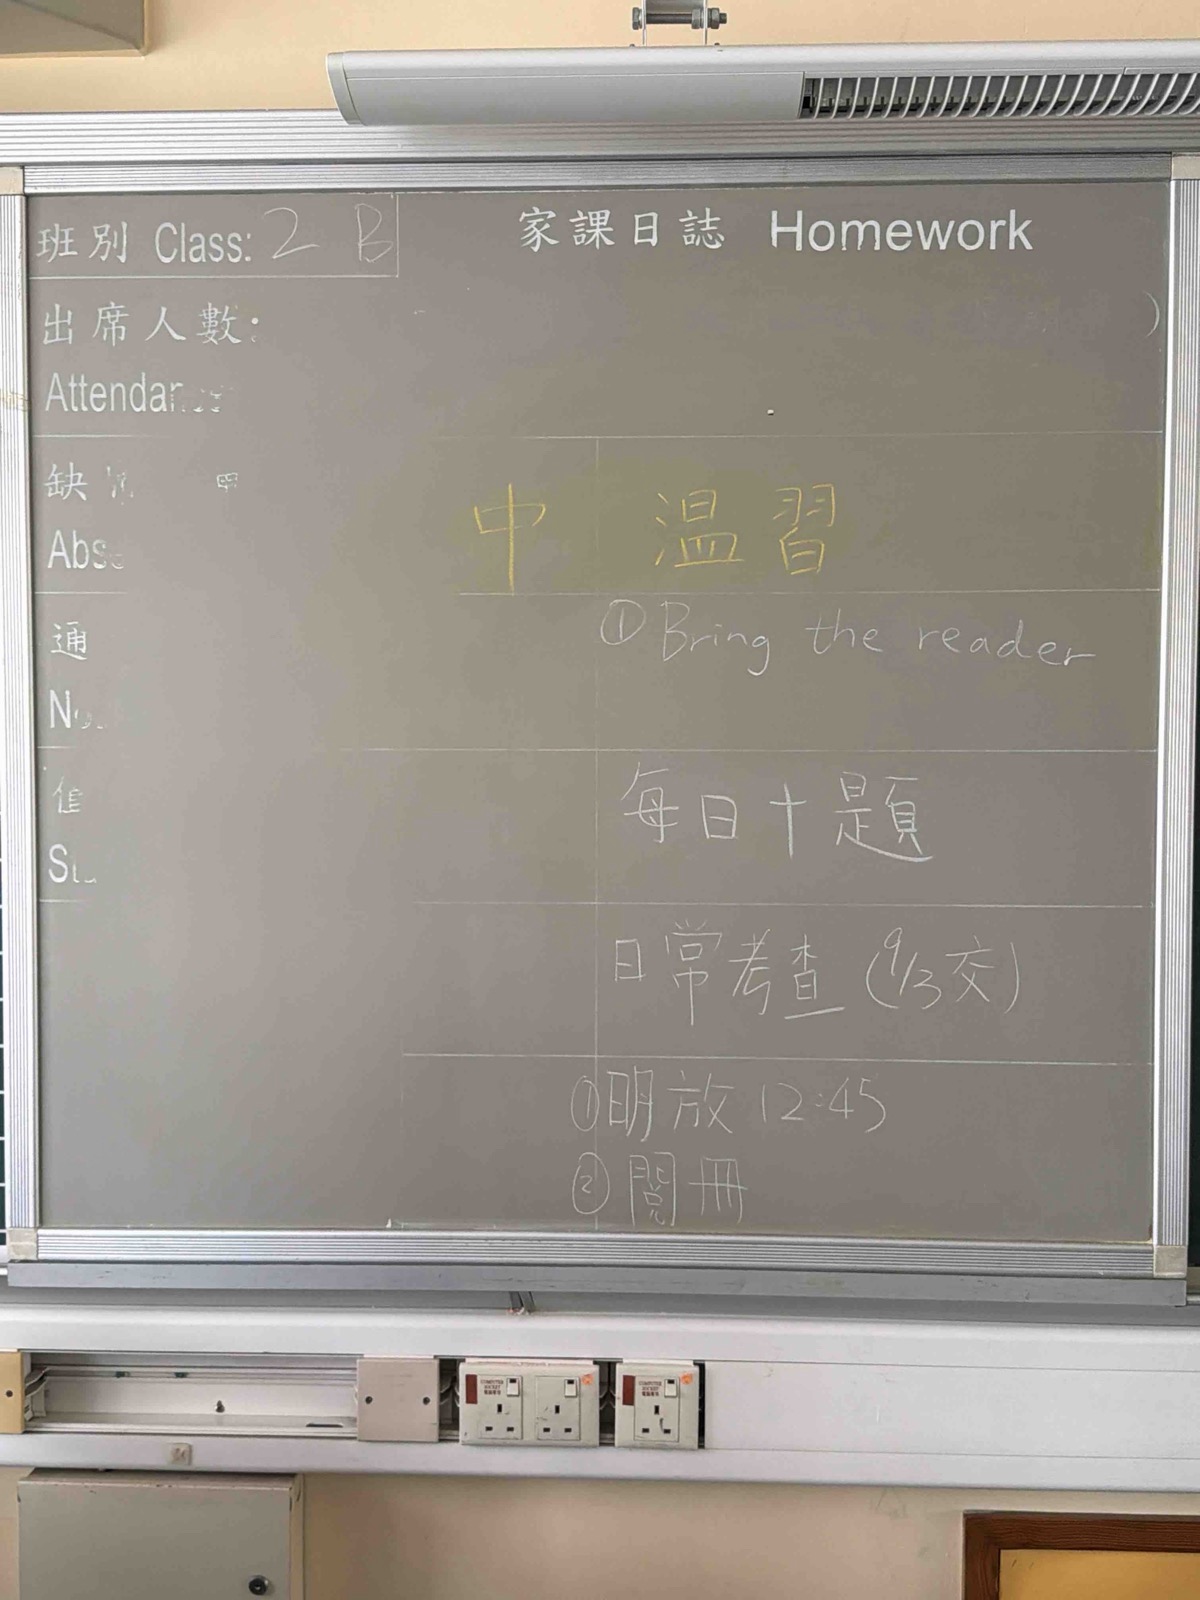 班別 Class: 2 B
家課日誌 Homework
出席人數:
Attendance
缺
中 温習
① Bring the reader
通
每日十題
日常考查 (9/3交)
①明放 12:45
②閱冊
COMPUTER SOCKET
COMPUTER SOCKET